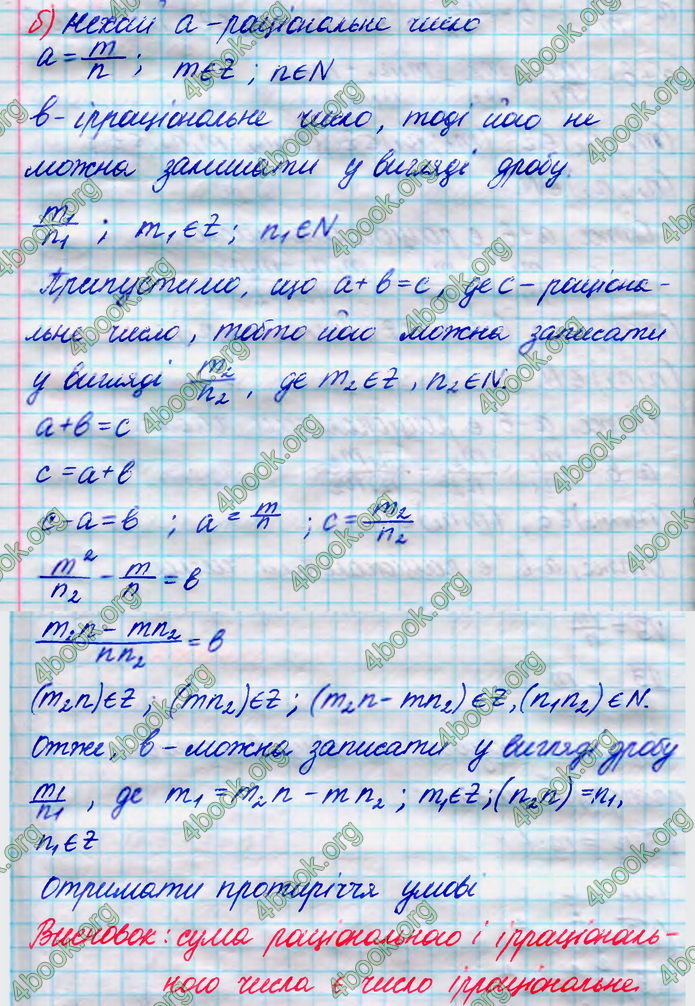 б) Нехай а - раціональне число
a = m/n ; m∈Z ; n∈N
в - ірраціональне число, тоді його не
можна залишати у вигляді дробу
m₁/n₁ ; m₁∈Z ; n₁∈N
Припустимо, що а+в=с, де с - раціона-
льне число, тобто його можна записати
у вигляді m₂/n₂, де m₂∈Z, n₂∈N.
а+в=с
с=а+в
с-а=в ; a = m/n ; c = m₂/n₂
m²/n₂ - m/n = в
(m₂n - mn₂)/(nn₂) = в
(m₂n)∈Z ; (mn₂)∈Z ; (m₂n - mn₂)∈Z, (n₁n₂)∈N.
Отже, в - можна записати у вигляді дробу
m₁/n₁, де m₁ = m₂n - mn₂ ; m₁∈Z ; (n₂n) = n₁,
n₁∈Z
Отримати протиріччя умові
Висновок: сума раціонального і ірраціональ-
ного числа є число ірраціональне.
4book.org